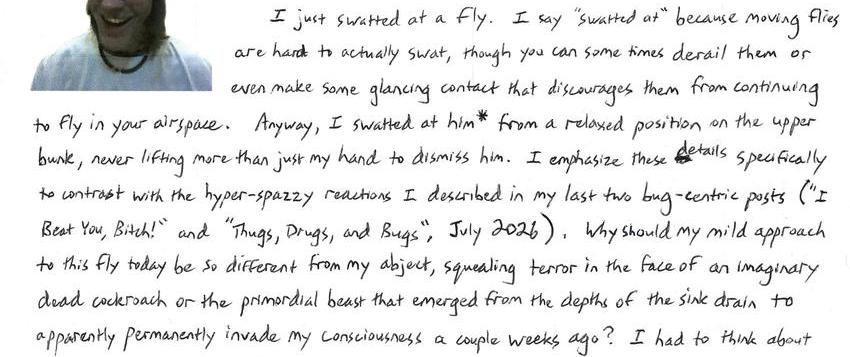 I just swatted at a fly. I say "swatted at" because moving flies
are hard to actually swat, though you can some times derail them or
even make some glancing contact that discourages them from continuing
to fly in your airspace. Anyway, I swatted at him* from a relaxed position on the upper
bunk, never lifting more than just my hand to dismiss him. I emphasize these details specifically
to contrast with the hyper-spazzy reactions I described in my last two bug-centric posts ("I
Beat You, Bitch!" and "Thugs, Drugs, and Bugs", July 2026). Why should my mild approach
to this fly today be so different from my abject, squealing terror in the face of an imaginary
dead cockroach or the primordial beast that emerged from the depths of the sink drain to
apparently permanently invade my consciousness a couple weeks ago? I had to think about